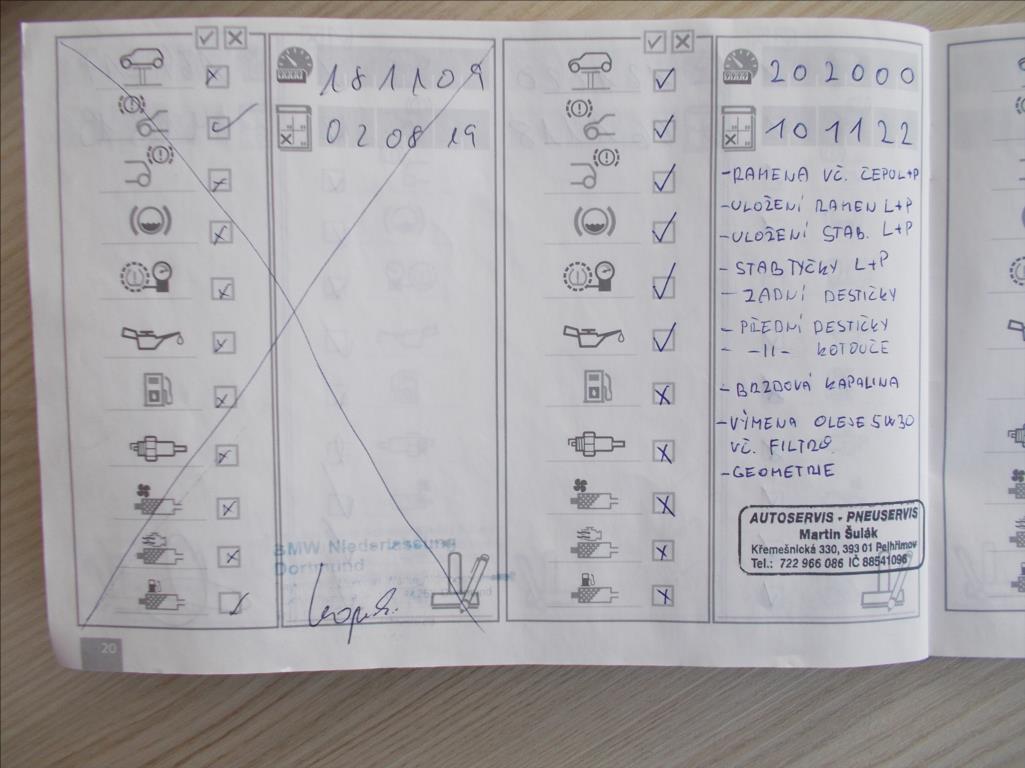 181109
02 08 19
BMW Niederlassung
Dortmund
20
202000
10 11 22
-RAMENA VČ. ČEPŮ L+P
-ULOŽENÍ RAMEN L+P
-ULOŽENÍ STAB. L+P
-STAB TYČKY L+P
- ZADNÍ DESTIČKY
- PŘEDNÍ DESTIČKY
- -11- KOTOUČE
-BRZDOVÁ KAPALINA
-VÝMENA OLEJE 5W30
VČ. FILTRŮ
-GEOMETRIE
AUTOSERVIS - PNEUSERVIS
Martin Šulák
Křemešnická 330, 393 01 Pelhřimov
Tel.: 722 966 086 IČ 88541096